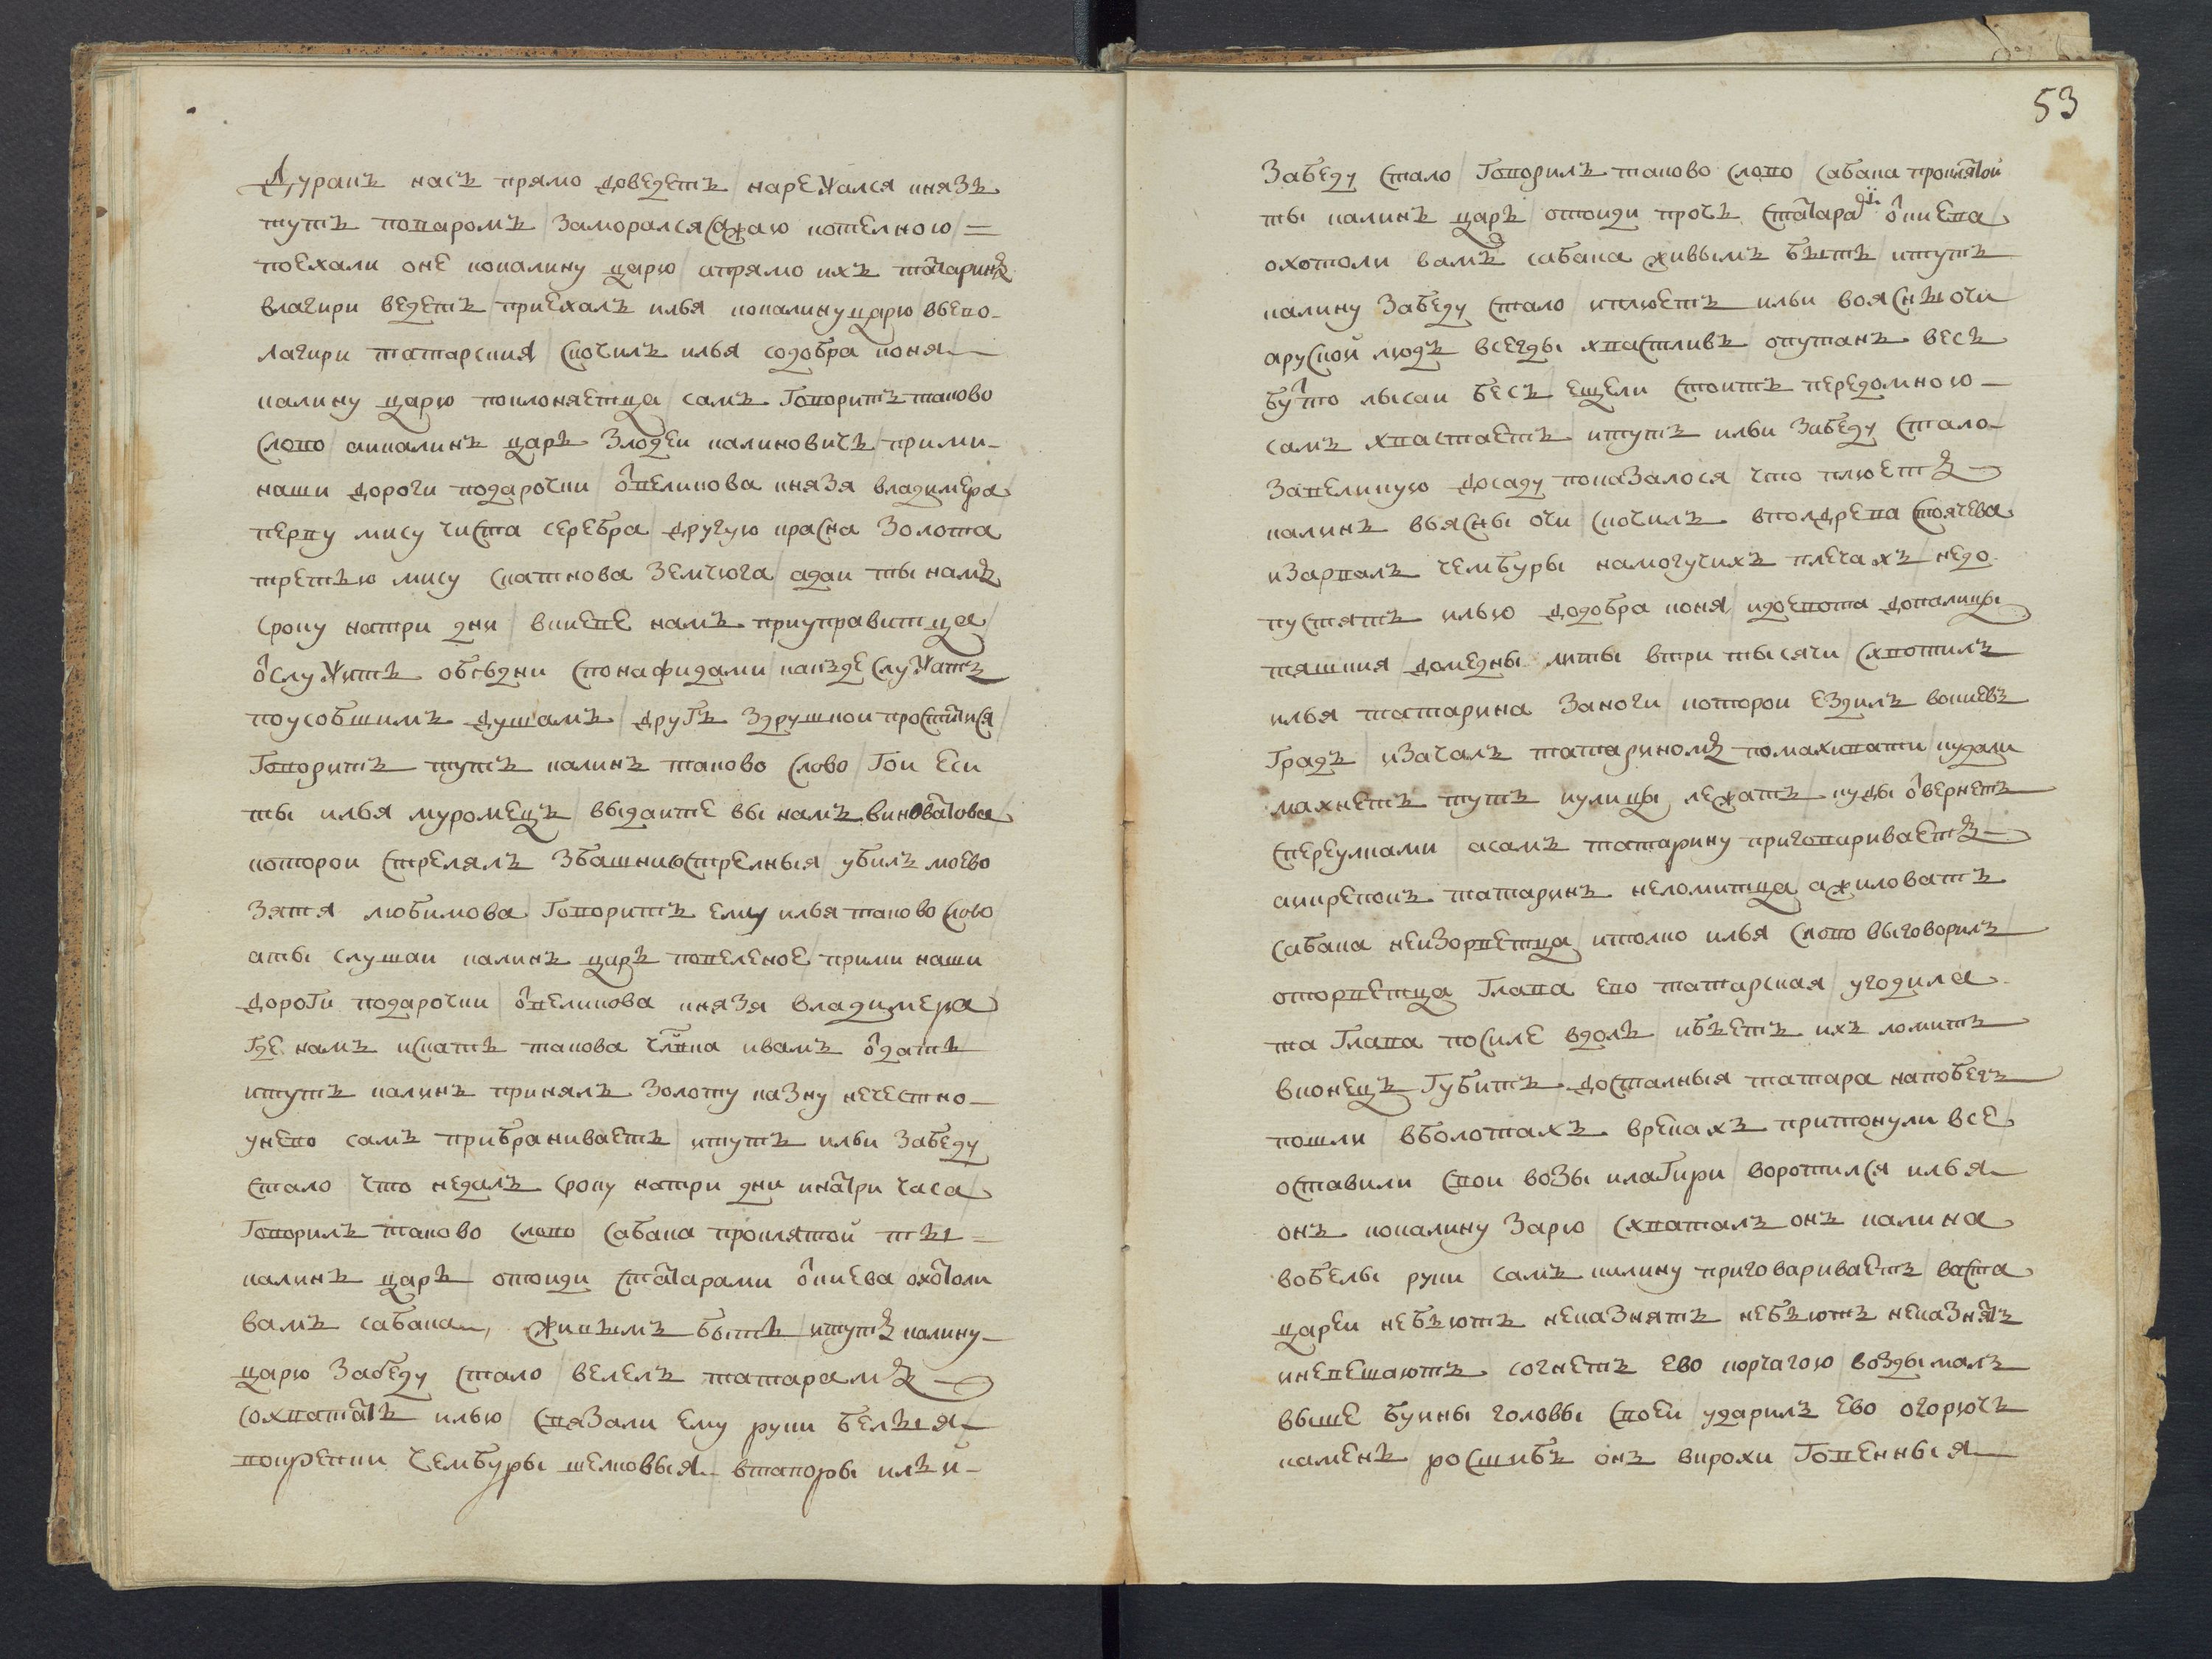 Дуракъ насъ прямо доведетъ / наряжался князь
тутъ поваромъ / заморался сажаю котелною / =
поехали оне ккалину царю / апрямо ихъ татаринъ
влагири ведетъ / приехалъ илья ккалину царю / вѣево-
лагири татарския / скочилъ илья содобра коня
калину царю поклоняетца / самъ говоритъ таково
слово / аикалинъ царь злодеи калиновичь / прими-
наши дороги подарочки / ѿвеликова князя владимера
перву мису чиста серебра / другую красна золота
третью мису скатнова земчюга / адаи ты намъ
сроку натри дни / вкиеве намъ приуправитца /
ѿслужить обѣдни спонафидами / какъде служатъ
поусобшимъ душамъ / другъ здрушкои проститися /
говоритъ тутъ калинъ таково слово / гои еси
ты илья муромецъ / выдаите вы намъ виноватова
которои стрелялъ збашнию стрелныя / убилъ моево
зятя любимова / говоритъ ему илья таково слово /
аты слушаи калинъ царь повеленое / прими наши
дороги подарочки / ѿвеликова князя владимера
где намъ искать такова члвка ивамъ ѿдать
итутъ калинъ принялъ золоту казну / нечестно-
унево самъ прибраниваетъ / итутъ ильи забеду
стало / что недалъ сроку натри дни инатри часа
говорилъ таково слово / сабака проклятои ты =
калинъ царь / отоиди статарами ѿкиева / охотоли
вамъ сабака, живымъ быть / итутъ калину-
царю забеду стало / велелъ татарамъ
сохватать илью / связали ему руки белыя
вокрепки чембуры шелковыя / втапоры илѣи-
53
забеду стало / говорилъ таково слово / сабака проклятои
ты калинъ царь / отоиди прочь статара ѿкиева /
охотоли вамъ сабака живымъ быть / итутъ
калину забеду стало / иплюетъ ильи воясны очи
арускои людъ всегды хвастливъ / опутанъ весь
буто лысаи бесъ / ещели стоитъ передомною-
самъ хвастаетъ / итутъ ильи забеду стало-
завеликую досаду показалося / что плюетъ
калинъ вьясны очи / скочилъ вполдрева стоячева
изарвалъ чембуры намогучихъ плечахъ / недо-
пустятъ илью додобра коня / идоевота допалицы
тяшкия / домедны литы втри тысячи / схвотилъ
илья татарина заноги / которои ездилъ вокиевъ
градъ / изачалъ татариномъ помахивати / кудали
махнетъ тутъ иулицы лежатъ / куды ѿвернетъ
спереулками / асамъ татарину приговариваетъ
аикрепокъ татаринъ неломитца / ажиловатъ
сабака неизорветца / итолко илья слово выговорилъ
оторветца глава ево татарская / угодила-
та глава посиле вдоль / ибьетъ ихъ ломитъ
вконецъ губитъ / досталныя татара напобегъ
пошли / вболотахъ врекахъ притонули все /
оставили свои возы илагири / воротился илья
онъ кокалину зарю / схваталъ онъ калина
вобелы руки / самъ килину приговариваетъ / васта
цареи небьютъ неказнятъ / небьютъ неказнятъ
иневешаютъ / согнетъ ево корчагою / воздымалъ
выше буины головы своеи / ударилъ ево огорючь
каменъ / росшибъ онъ вкрохи говенныя